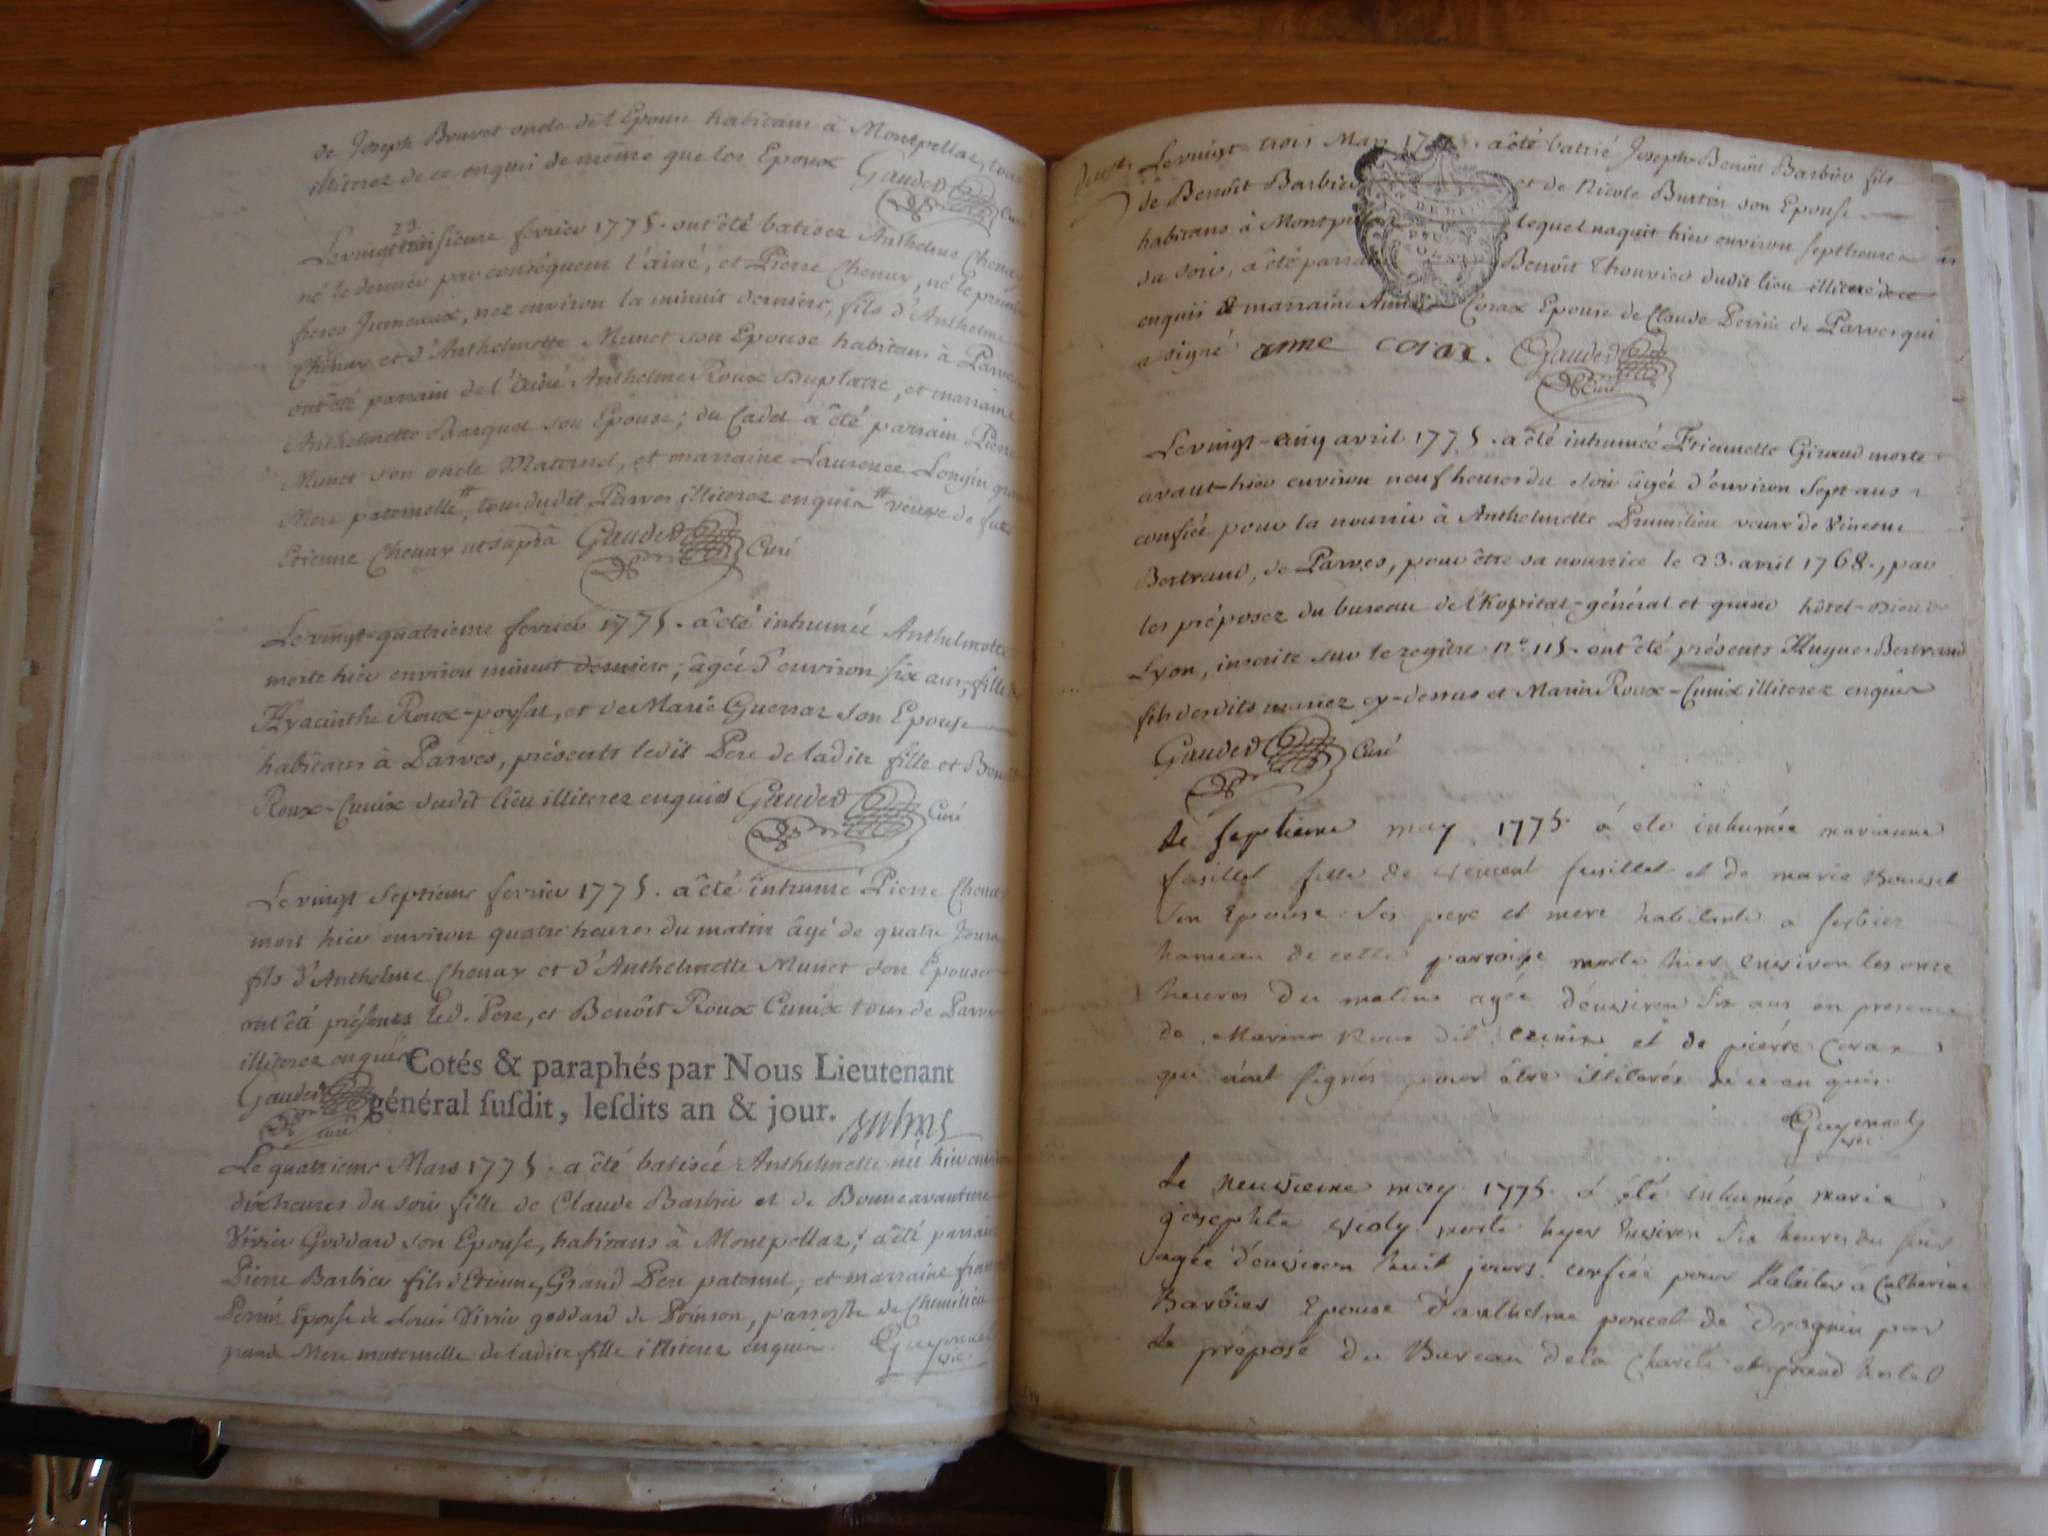 de Joseph Bouvet oncle de l'Epouse habitans à Montpellaz, tous
illiterez de ce enquis de même que les Epoux Gauded Curé
23
Le vingt troisieme fevrier 1775. ont été batisez Anthelme Chenay
né le dernier par conséquent l'ainé, et Pierre Chenay, né le premier
freres Jumeaux, nez environ la minuit derniere, fils d'Anthelme
Chenay et d'Anthelmette Munet son Epouse habitans à Parves
ont été parrain de l'ainé Anthelme Roux Duplatre, et marraine
Anthelmette son Epouse; du Cadet a été parrain Pierre
Munet son oncle Maternel, et marraine Laurence Longin grand
Mere paternelle #, tous dudit Parves illiterez enquis # veuve de feu
Etienne Chenay ut supra Gauded Curé
Le vingt-quatrieme fevrier 1775. a été inhumée Anthelmette
morte hier environ minuit derniere; âgée d'environ six ans, fille
Hyacinthe Roux-poysat, et de Marie Guerraz son Epouse
habitans à Parves, présents ledit Pere de ladite fille et Benoît
Roux-Cunix dudit lieu illiterez enquis Gauded Curé
Le vingt septieme fevrier 1775. a été inhumé Pierre Chenay
mort hier environ quatre heures du matin âgé de quatre Jours
fils d'Anthelme Chenay et d'Anthelmette Munet son Epouse
ont été présents led. Pere, et Benoît Roux Cunix tous de Parves
illiterez enquis
Cotés & paraphés par Nous Lieutenant
Gauded Curé
général susdit, lesdits an & jour.
Le quatrieme Mars 1775. a été batisée Anthelmette née hier environ
dix heures du soir fille de Claude Barbier et de Bonneavanture
Vivier Goddard son Epouse, habitans à Montpellaz; a été parrain
Pierre Barbier fils d'Etienne, Grand Pere paternel, et marraine
Perrin Epouse de Louis Vivier goddard de Poinson, parroisse de Chemilieu
grande Mere maternelle de ladite fille illiterez enquis. Guyennet vic.
Le vingt trois Mars 1775. a été batisé Joseph-Benoît Barbier fils
de Benoît Barbier et de Nicole Burtin son Epouse
habitans à Montp lequel naquit hier environ sept heures
du soir, a été parrain Benoît Thouvier dudit lieu illiteré de ce
enquis & marraine Anne Corax Epouse de Claude Perrin de Parves qui
a signé anne corax. Gauded Curé
Le vingt-cinq avril 1775. a été inhumée Etiennette Giraud morte
avant-hier environ neuf heures du soir âgée d'environ sept ans
confiée pour la nourrir à Anthelmette Prumilieu veuve de Vincent
Bertrand, de Parves, pour être sa nourrice le 23. avril 1768., par
les préposez du bureau de l'hopital-général et grand hôtel-Dieu de
Lyon, inscrite sur le registre n.° 115. ont été présents Hugues Bertrand
fils desdits mariez cy-dessus et Marin Roux-Cunix illiterez enquis
Gauded Curé
Le septieme may 1775. a été inhumée marianne
fusillet fille de vincent fusillet et de marie Bouvet
son Epouse ses pere et mere habitants a sorbier
hameau de cette parroisse morte hier environ les onze
heures du matin agée d'environ six ans en presence
de Marin Roux dit cunix et de pierre corax
qui n'ont signés pour être illiterés de ce enquis.
Guyennet vic.
Le neuvieme may 1775. a été inhumée marie
josephte morte hyer environ six heures du soir
agée d'environ huit jours. confiée pour l'alaiter à Catherine
Barbier Epouse d'anthelme poncet de par
le préposé du Bureau de la charité et grand hotel